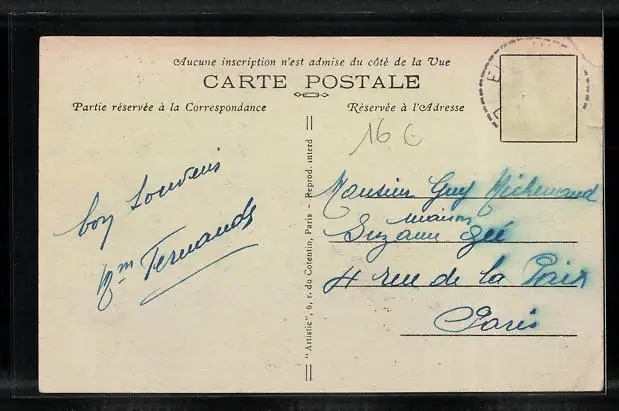 Aucune inscription n'est admise du côté de la Vue
CARTE POSTALE
Partie réservée à la Correspondance
Réservée à l'Adresse
16 €
bon souvenir
Fernande
"Artistic", 6, r. du Cotentin, Paris - Reprod. interd
Monsieur Guy
maison
Suzanne
4 rue de la Paix
Paris